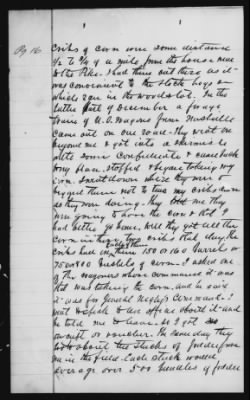 Pg 16
cribs of corn were some distance
1/2 to 3/4 of a mile from the house near
to the Pike. I had them out there as it
was convenient to the stock hogs
which ran in the woods lot. In the
latter part of December a forage
train of U.S. Wagons from Nashville
came out on our road. They went on
beyond me & got into a skirmish
with some Confederates & came back
to my place, stopped & began taking my
corn. I went down where they were &
begged them not to take my cribs down
as they were doing. They told me they
were going to have the corn & that I
had better go home. Well they got all the
corn in these two cribs that day, the
cribs had in them 150 or 160 Barrels or
750 or 800 Bushels of corn. I asked one
of the wagoners whose command it was
that was taking the corn, and he said
it was for General Negley's Command. I
went & spoke to an officer about it and
he told me to leave. So I got no
receipt or voucher. The same day they
of fodder from
me in the field. Each stack would
average over 500 bundles of fodder